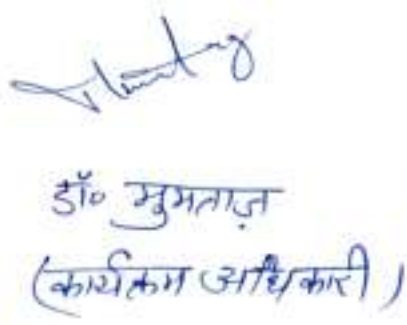 डॉ० मुमताज़
(कार्यक्रम अधिकारी)